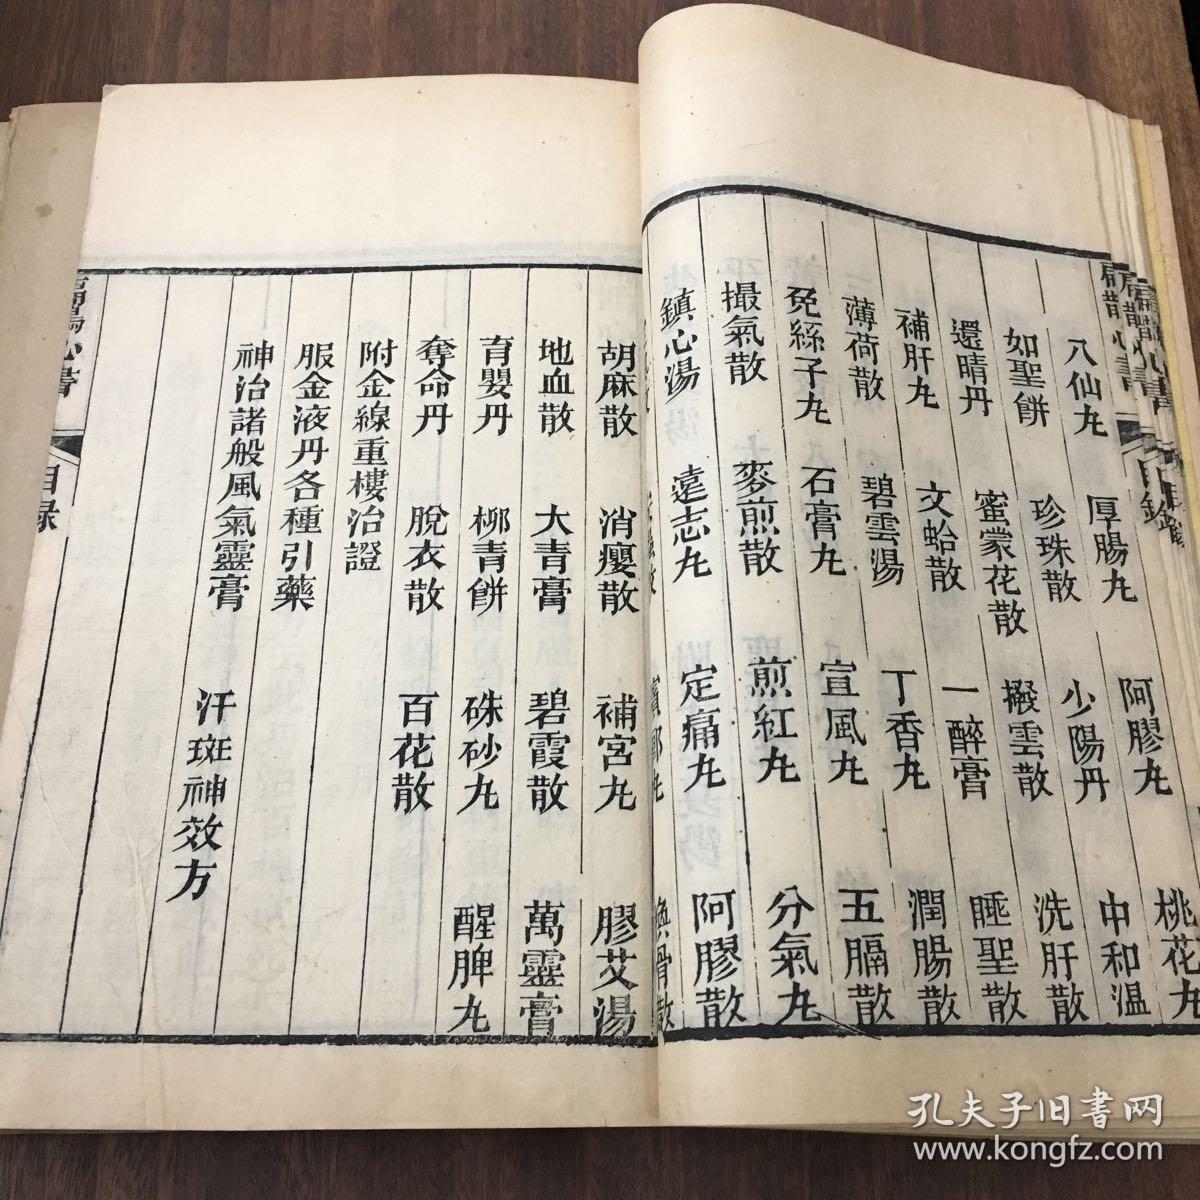 八仙丸 厚腸丸 阿膠丸 桃花丸
如聖餅 珍珠散 少陽丹 中和湯
還睛丹 蜜蒙花散 撥雲散 洗肝散
補肝丸 文蛤散 一醉膏 睡聖散
薄荷散 碧雲湯 丁香丸 潤腸散
兔絲子丸 石膏丸 宣風丸 五膈散
撮氣散 麥煎散 煎紅丸 分氣丸
鎮心湯 遠志丸 定痛丸 阿膠散
換骨散
胡麻散 消癭散 補宮丸 膠艾湯
地血散 大青膏 碧霞散 萬靈膏
育嬰丹 柳青餅 硃砂丸 醒脾丸
奪命丹 脫衣散 百花散
附金線重樓治證
服金液丹各種引藥
神治諸般風氣靈膏 汗斑神效方
扁鵲心書 目錄
孔夫子旧书网
www.kongfz.com